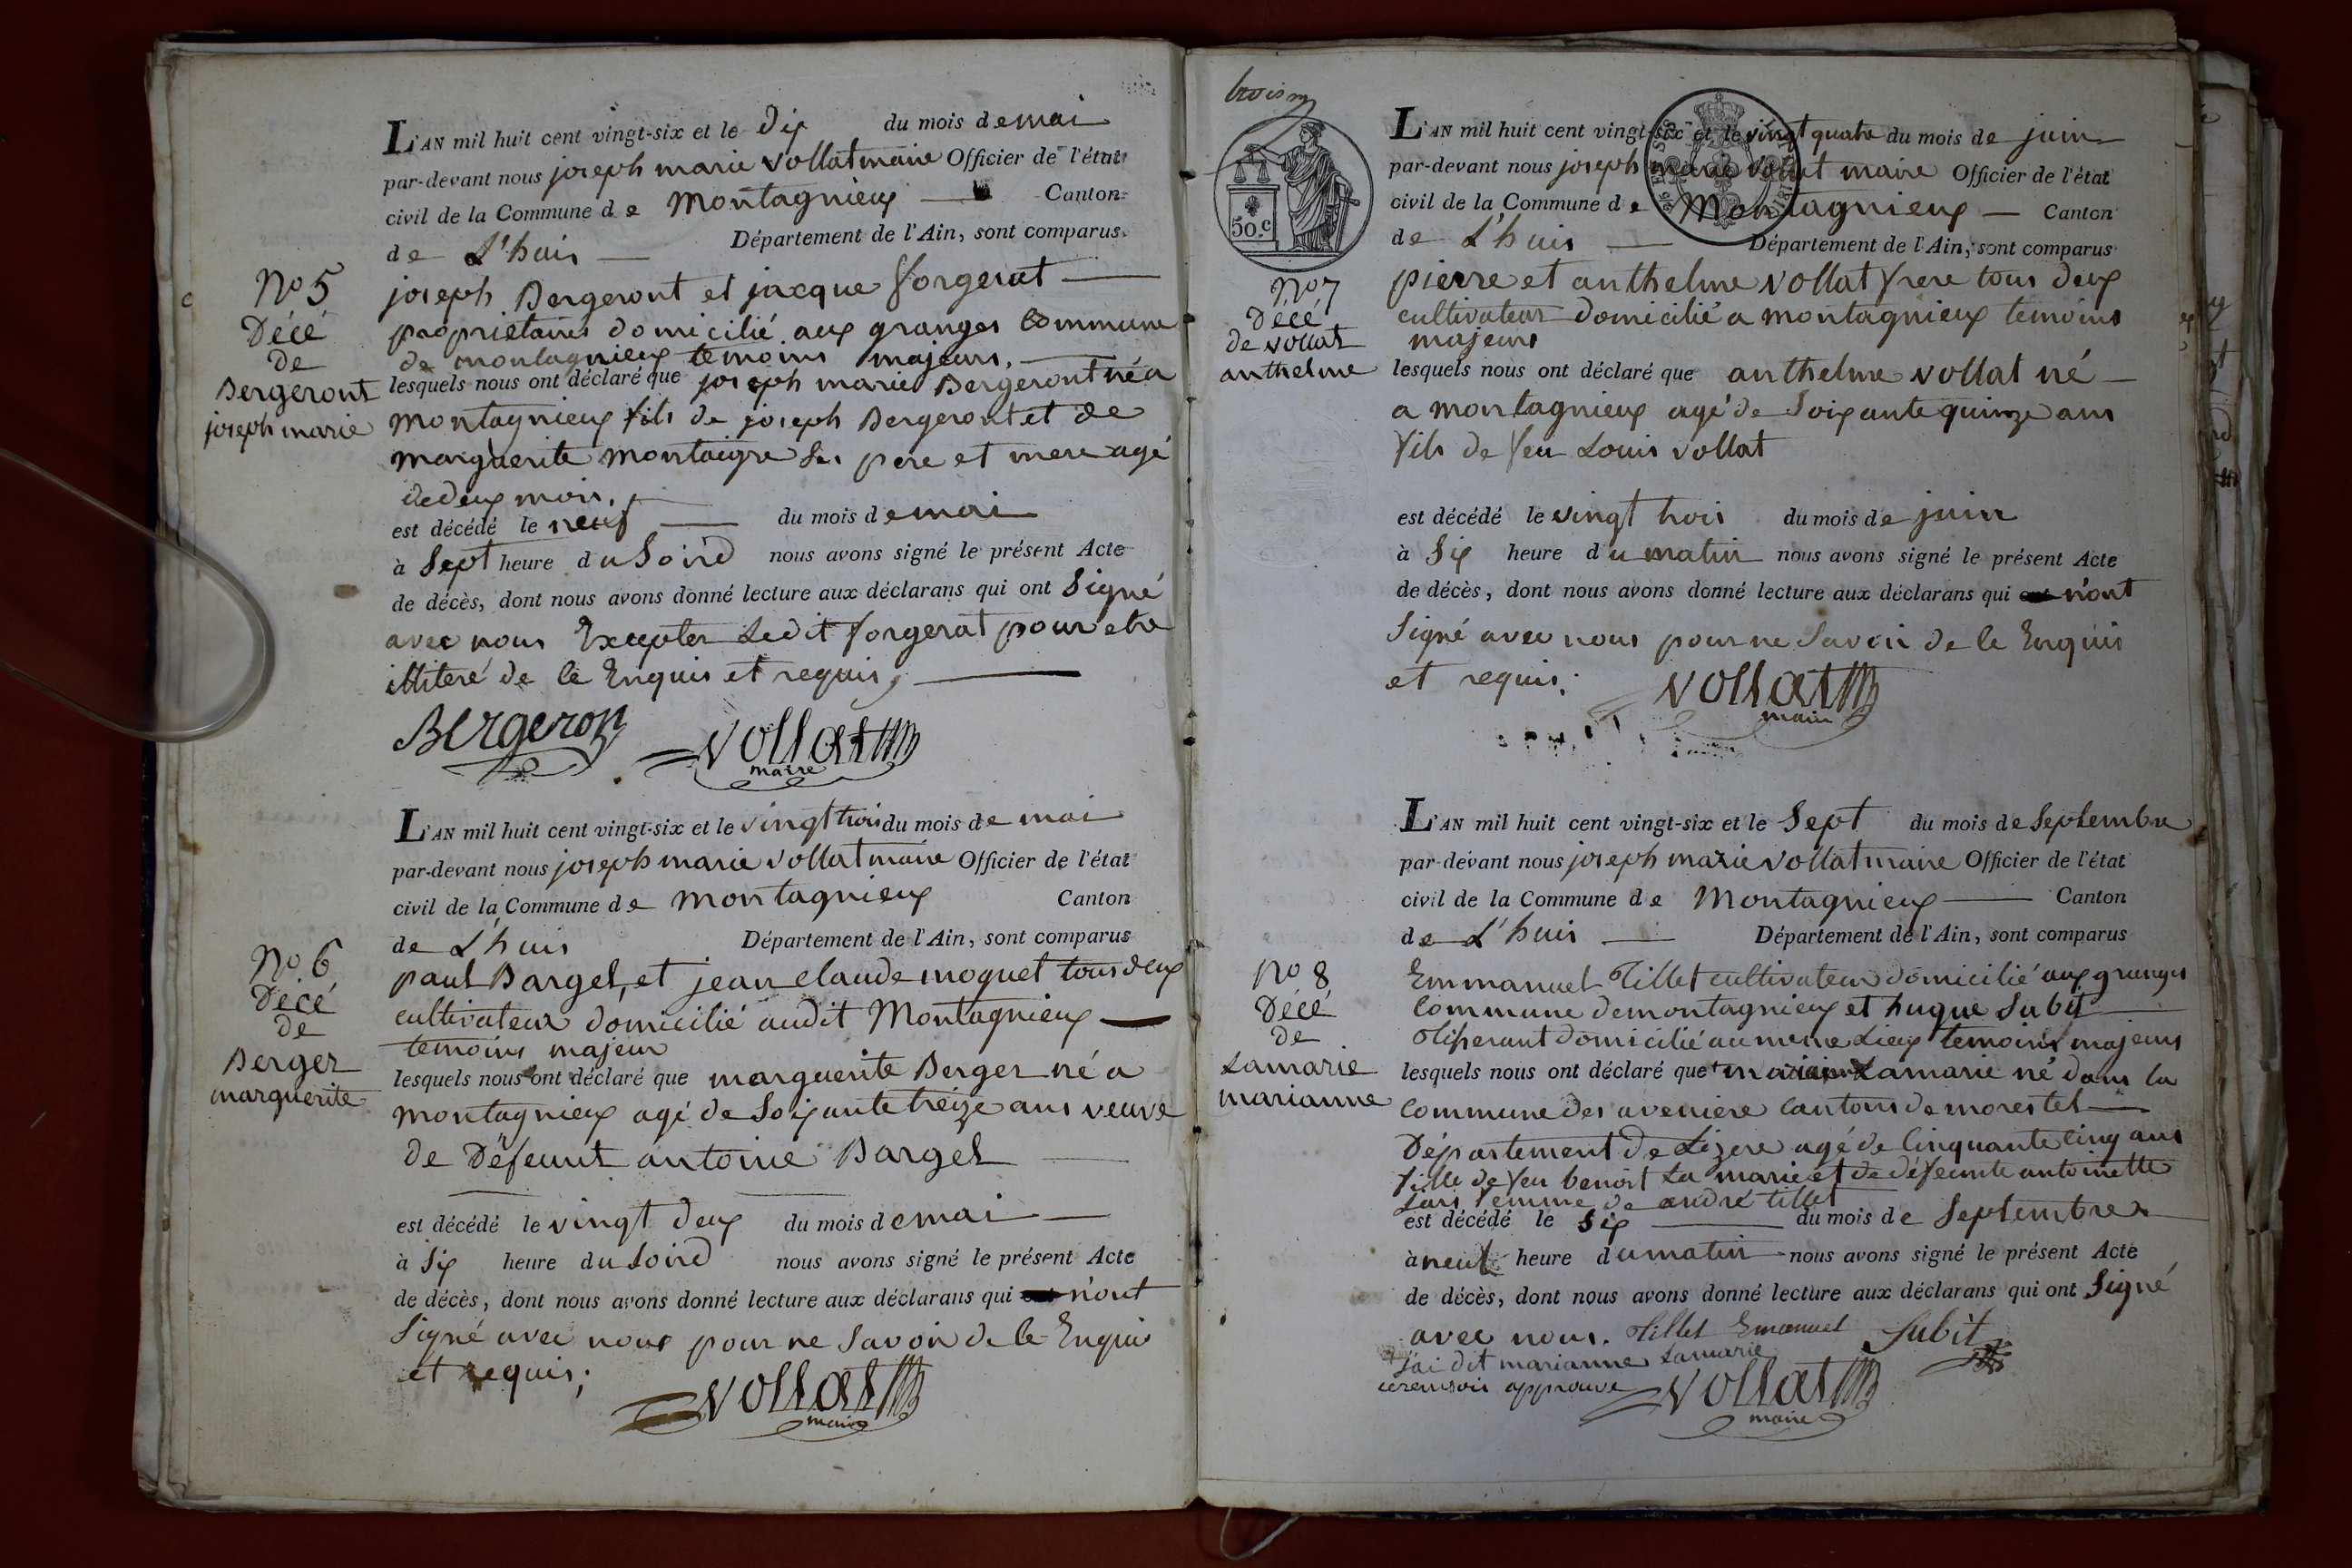 L'AN mil huit cent vingt-six et le dix du mois de mai
par-devant nous joseph marie vollat maire Officier de l'état
civil de la Commune de Montagnieux Canton
de L'huis Département de l'Ain, sont comparus
joseph Bergeront et jacque forgerat
propriétaires domicilié aux granges Commune
de montagnieux temoins majeurs.
lesquels nous ont déclaré que joseph marie Bergeront né a
Montagnieux fils de joseph Bergeront et de
marguerite montaigre ses pere et mere agé
de deux mois.
est décédé le neuf du mois de mai
à Sept heure du Soird nous avons signé le présent Acte
de décès, dont nous avons donné lecture aux déclarans qui ont Signé
avec nous Excepter Ledit forgerat pour etre
illiteré de ce Enquis et requis,
Bergeron Vollat
maire
No 5
Décé
de
Bergeront
joseph marie
L'AN mil huit cent vingt-six et le vingt trois du mois de mai
par-devant nous joseph marie vollat maire Officier de l'état
civil de la Commune de Montagnieux Canton
de L'huis Département de l'Ain, sont comparus
paul Barget, et jean claude moquet tous deux
cultivateur domicilié audit Montagnieux
temoins majeur
lesquels nous ont déclaré que marguerite Berger né a
montagnieux agé de Soixante treize ans veuve
de Défeunt antoine Barget
est décédé le vingt deux du mois de mai
à Six heure du Soird nous avons signé le présent Acte
de décès, dont nous avons donné lecture aux déclarans qui n'ont
Signé avec nous pour ne Savoir de le Enquis
et requis;
Vollat
maire
No 6
Décé
de
Berger
marguerite
troism
50.c
L'AN mil huit cent vingt-six et le vingt quatre du mois de juin
par-devant nous joseph marie vollat maire Officier de l'état
civil de la Commune de Montagnieux Canton
de L'huis Département de l'Ain, sont comparus
pierre et anthelme vollat frere tous deux
cultivateur domicilié a montagnieux temoins
majeurs
lesquels nous ont déclaré que anthelme vollat né
a montagnieux agé de Soixante quinze ans
fils de feu Louis vollat
est décédé le vingt trois du mois de juin
à Six heure du matin nous avons signé le présent Acte
de décès, dont nous avons donné lecture aux déclarans qui n'ont
Signé avec nous pour ne Savoir de le Enquis
et requis;
Vollat
maire
No 7
Décé
de vollat
anthelme
L'AN mil huit cent vingt-six et le Sept du mois de Septembre
par-devant nous joseph marie vollat maire Officier de l'état
civil de la Commune de Montagnieux Canton
de L'huis Département de l'Ain, sont comparus
Emmanuel Tillet cultivateur domicilié aux granges
Commune de montagnieux et hugue Subit
Tiserant domicilié au meme Lieux temoins majeurs
lesquels nous ont déclaré que Lamarie né dans la
Commune des aveniere Cantons de morestel
Département de Lizere agé de Cinquante cinq ans
fille de feu benoit La marie et de défeunte antoinette
femme de andré tillet
est décédé le Six du mois de Septembre
à neuf heure du matin nous avons signé le présent Acte
de décès, dont nous avons donné lecture aux déclarans qui ont Signé
avec nous. Tillet Emanuel Subit
j'ai dit marianne Lamarie
approuve Vollat
maire
No 8
Décé
de
Lamarie
marianne